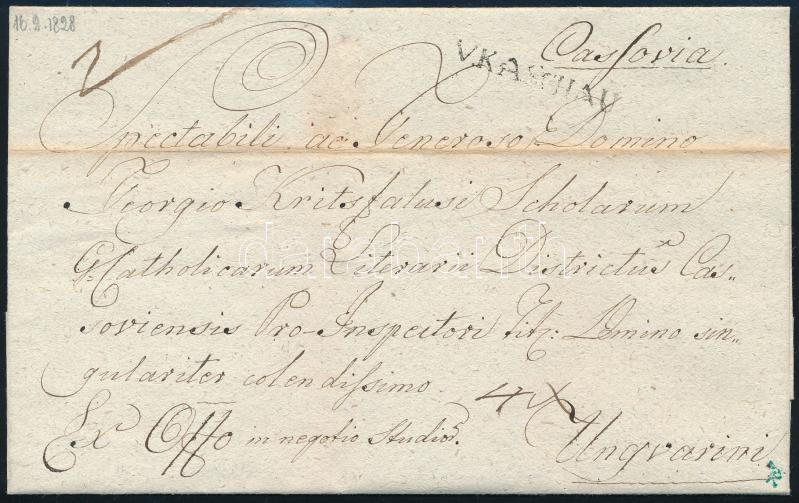 16.2.1828
Cassovia.
V.KASCHAU
Spectabili ac Generoso Domino
Georgio Kritsfalusi Scholarum
G: Catholicarum Literarii Districtus Cas„
soviensis Pro-Inspectori Tit: Domino sin„
gulariter colendissimo.
Ex Offo in negotio Studior.
Ungvarini